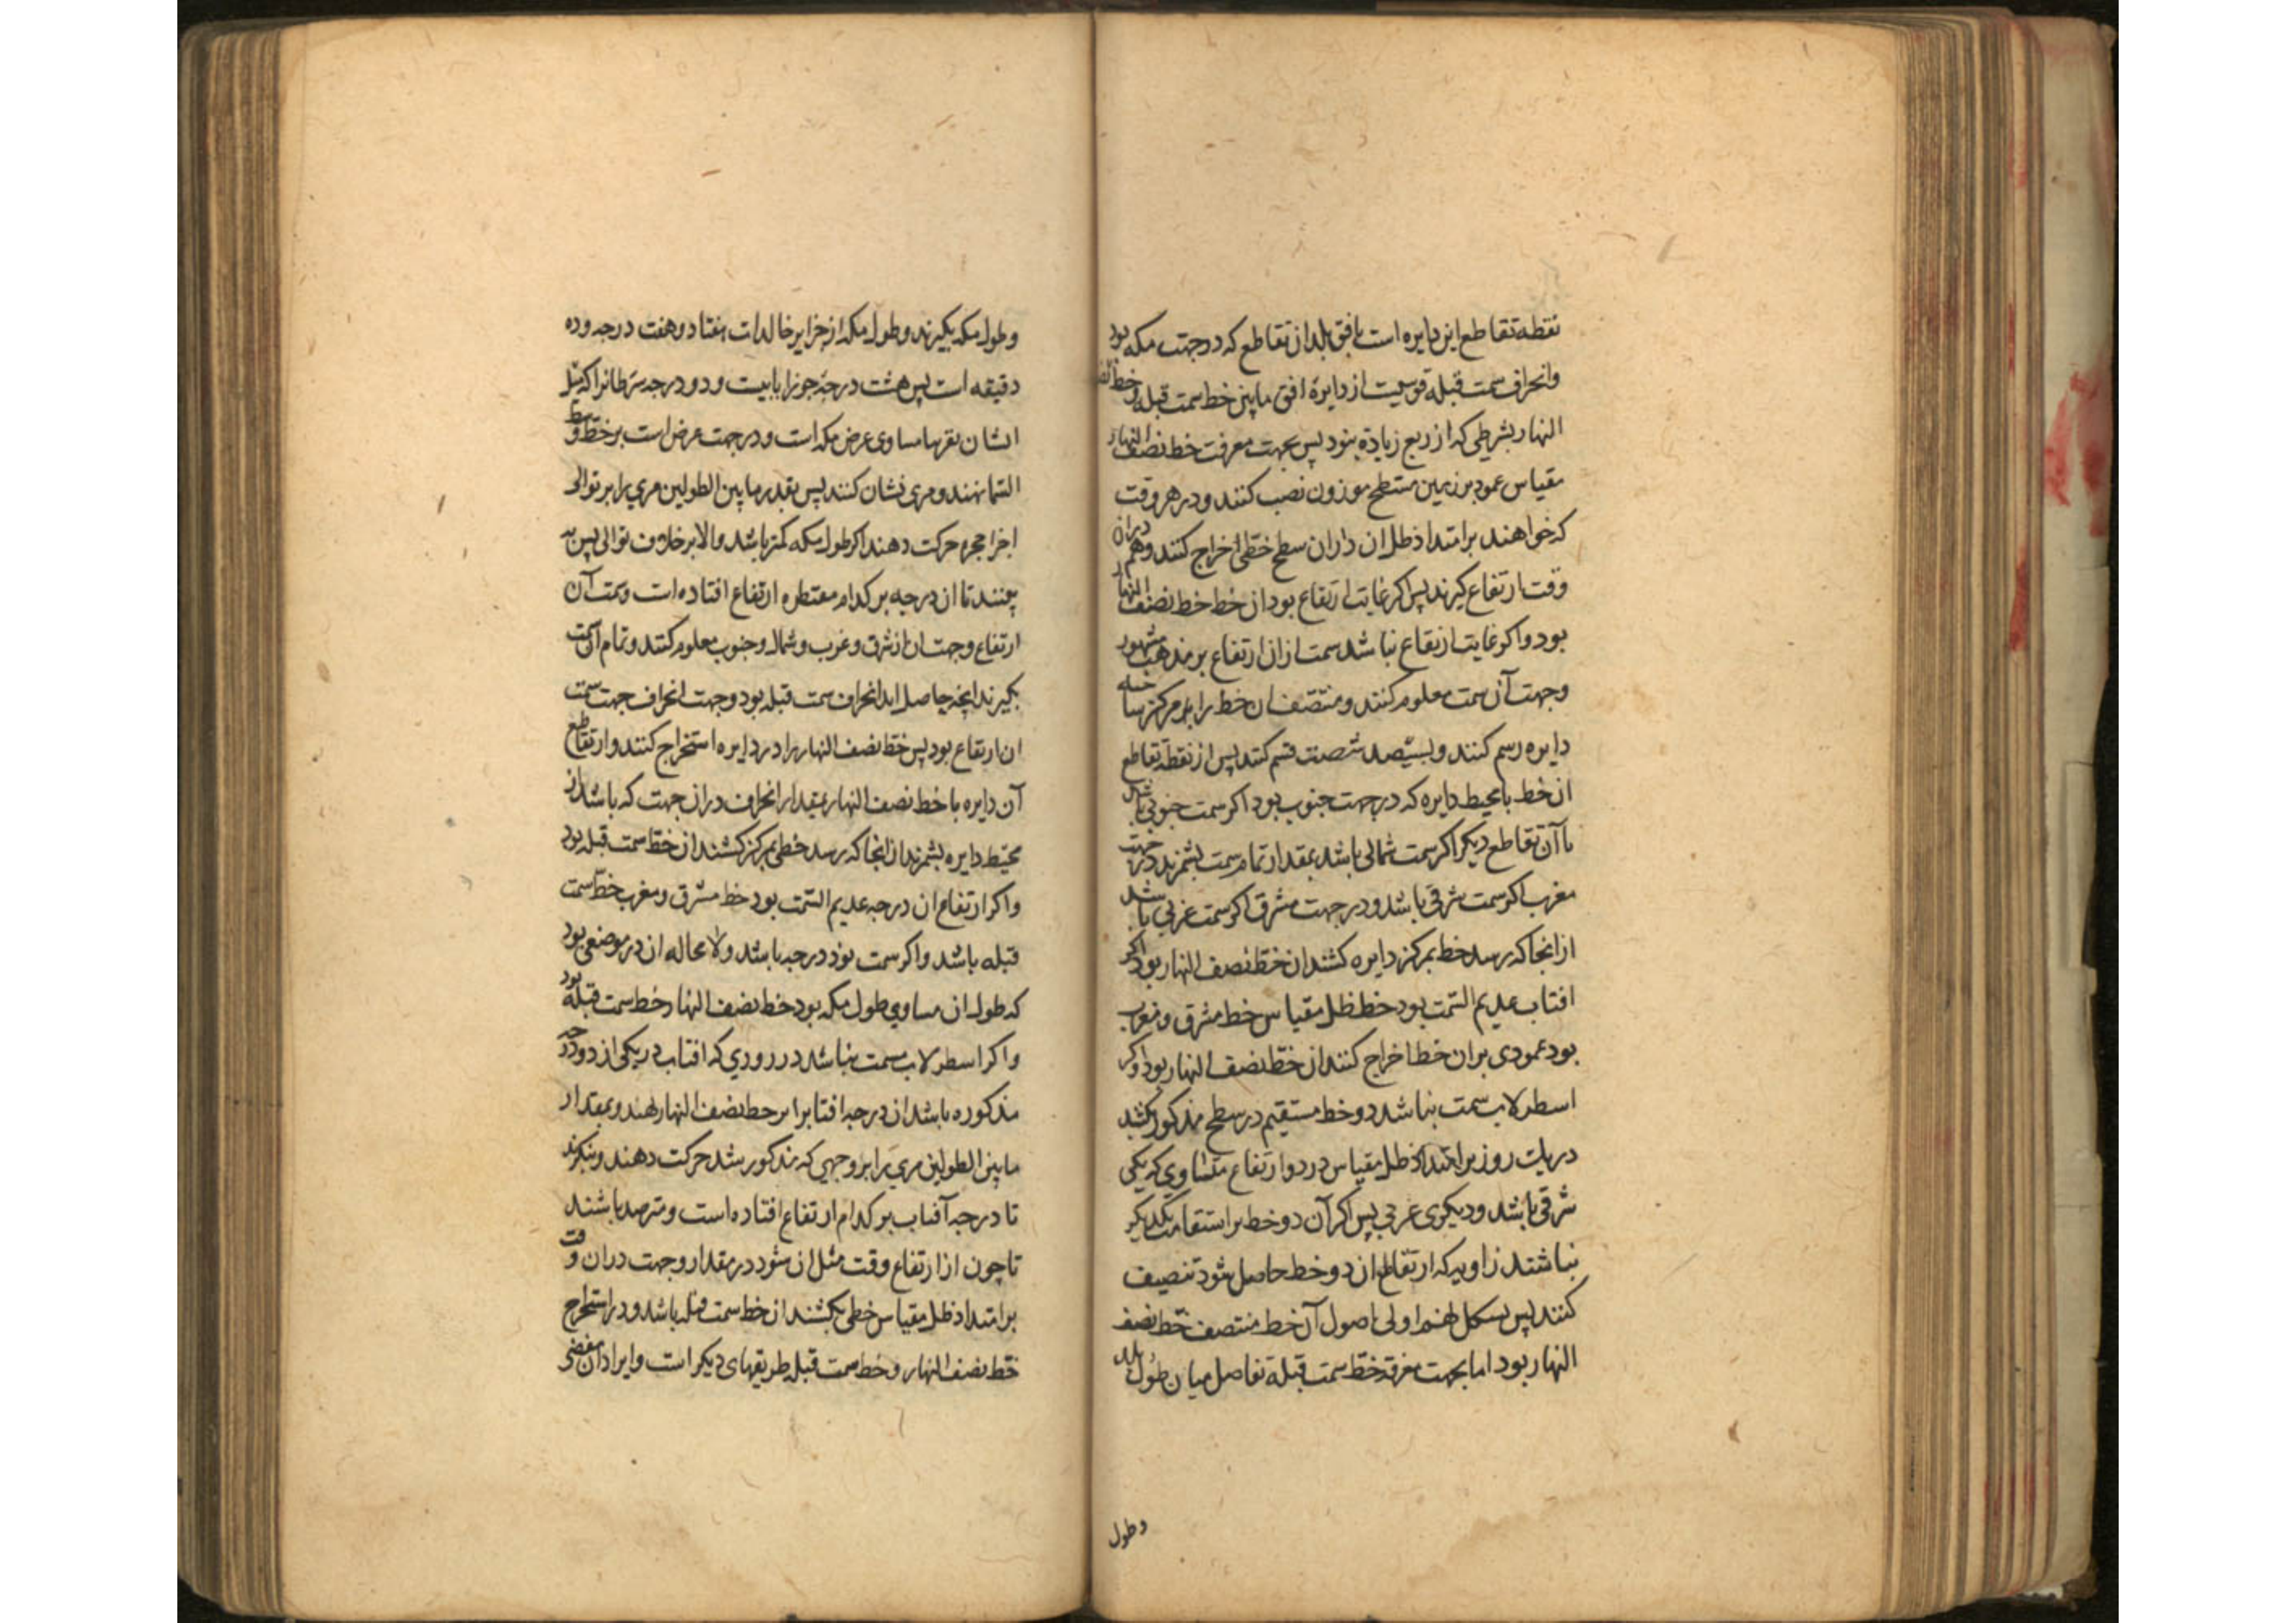 نقطه تقاطع این دایره است بافق بلد از تقاطع که در جهت مکه بود
وانحراف سمت قبله قوسیت از دایرهٔ افق مابین خط سمت قبله و خط نصف
النهار بشرطی که از ربع زیاده نبود پس بجهت معرفت خط نصف النهار
مقیاس عمود بر زمین مسطح موزون نصب کنند و در هر وقت
که خواهند بر امتداد ظل ان دران سطح خطی اخراج کنند وهم دران
وقت ارتفاع گیرند پس اکر غایت ارتفاع بود ان خط خط نصف النهار
بود واکر غایت ارتفاع نباشد سمت ازان ارتفاع بر مذهب مشهور
وجهت آن سمت معلوم کنند و منتصف ان خط را بر مرکز ساخته
دایره رسم کنند و بسیصد شصت قسم کنند پس از نقطهٔ تقاطع
ان خط با محیط دایره که در جهت جنوب بود اکر سمت جنوبی باشد
با آن تقاطع دیکر اکر سمت شمالی باشد بمقدار تمام سمت بشمرند در جهت
مغرب اکر سمت شرقی باشد ودر جهت مشرق اکر سمت غربی باشد
از انجا که رسد خط بمرکز دایره کشند ان خط نصف النهار بود اکر
افتاب عدیم السّمت بود خط ظل مقیاس خط مشرق و مغرب
بود عمودی بران خط اخراج کنند ان خط نصف النهار بود واکر
اسطرلاب سمت نباشد دو خط مستقیم در سطح مذکور بکشند
در یک روز بر امتداد ظل مقیاس در دو ارتفاع متساوی که یکی
شرقی باشد ودیکری غربی پس اکر آن دو خط بر استقامت یکدیکر
نباشند زاویه که از تقاطع ان دو خط حاصل شود تنصیف
کنند پس بشکل نهم اولی اصول آن خط منتصف خط نصف
النهار بود اما بجهت معرفة خط سمت قبلة تفاصل میان طول بلد
وطول
وطول مکه بکیرند وطول مکه از جزایر خالدات هفتاد وهفت درجه وده
دقیقه است پس هشت درجهٔ جوزا یا بیست ودو درجه سرطانرا که میل
ایشان تقریبا مساوی عرض مکه است ودر جهت عرض است بر خط وسط
السّما نهند ومری نشان کنند پس بقدر مابین الطولین مری را بر توالی
اجزا حجره حرکت دهند اکر طول مکه کمتر باشد والا بر خلاف توالی پس به
بینند تا ان درجه بر کدام مقنطره ارتفاع افتاده است وسمت آن
ارتفاع وجهت ان از شرق وغرب وشمال وجنوب معلوم کنند وتمام آن سمت
بکیرند انچه حاصل اید انحراف سمت قبله بود وجهت انحراف جهت سمت
ان ارتفاع بود پس خط نصف النهار را در دایره استخراج کنند وا ز تقاطع
آن دایره با خط نصف النهار بمقدار انحراف دران جهت که باشد از
محیط دایره بشمرند از انجا که رسد خطی بمرکز کشند ان خط سمت قبله بود
واکر ارتفاع ان درجه عدیم السّمت بود خط مشرق ومغرب خط سمت
قبله باشد واکر سمت نود درجه باشد ولا محاله ان در موضعی بود
که طول ان مساوی طول مکه بود خط نصف النهار خط سمت قبله بود
واکر اسطرلاب مسمت نباشد در روزی که افتاب در یکی از دو درجه
مذکوره باشد ان درجه افتاب را بر خط نصف النهار نهند وبمقدار
مابین الطولین مری را بر وجهی که مذکور شد حرکت دهند وبنکرند
تا درجه آفتاب بر کدام ارتفاع افتاده است ومترصد باشند
تا چون از ارتفاع وقت مثل ان شود در مقدار وجهت دران وقت
بر امتداد ظل مقیاس خطی بکشند ان خط سمت قبله باشد ودر استخراج
خط نصف النهار وخط سمت قبله طریقهای دیکر است وایراد ان مفضی